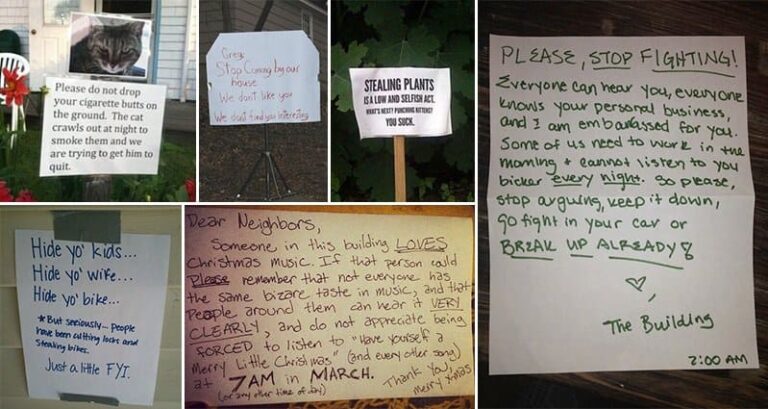 Please do not drop
your cigarette butts on
the ground. The cat
crawls out at night to
smoke them and we
are trying to get him to
quit.
Greg
Stop Coming by our
house
We don't like you
We don't find you interesting
STEALING PLANTS
IS A LOW AND SELFISH ACT.
WHAT'S NEXT? PUNCHING KITTENS?
YOU SUCK.
PLEASE, STOP FIGHTING!
Everyone can hear you, everyone
knows your personal business,
and I am embarassed for you.
Some of us need to work in the
morning + cannot listen to you
bicker every night. So please,
stop arguing, keep it down,
go fight in your car or
BREAK UP ALREADY!
♡,
The Building
2:00 AM
Hide yo' kids...
Hide yo' wife...
Hide yo' bike...
* But seriously... people
have been cutting locks and
stealing bikes.
Just a little FYI.
Dear Neighbors,
Someone in this building LOVES
Christmas music. If that person could
Please remember that not everyone has
the same bizare taste in music, and that
People around them can hear it VERY
CLEARLY, and do not appreciate being
FORCED to listen to "Have yourself a
Merry Little Christmas" (and every other song)
at 7AM in MARCH.
(or any other time of day)
Thank You,
Merry X-mas